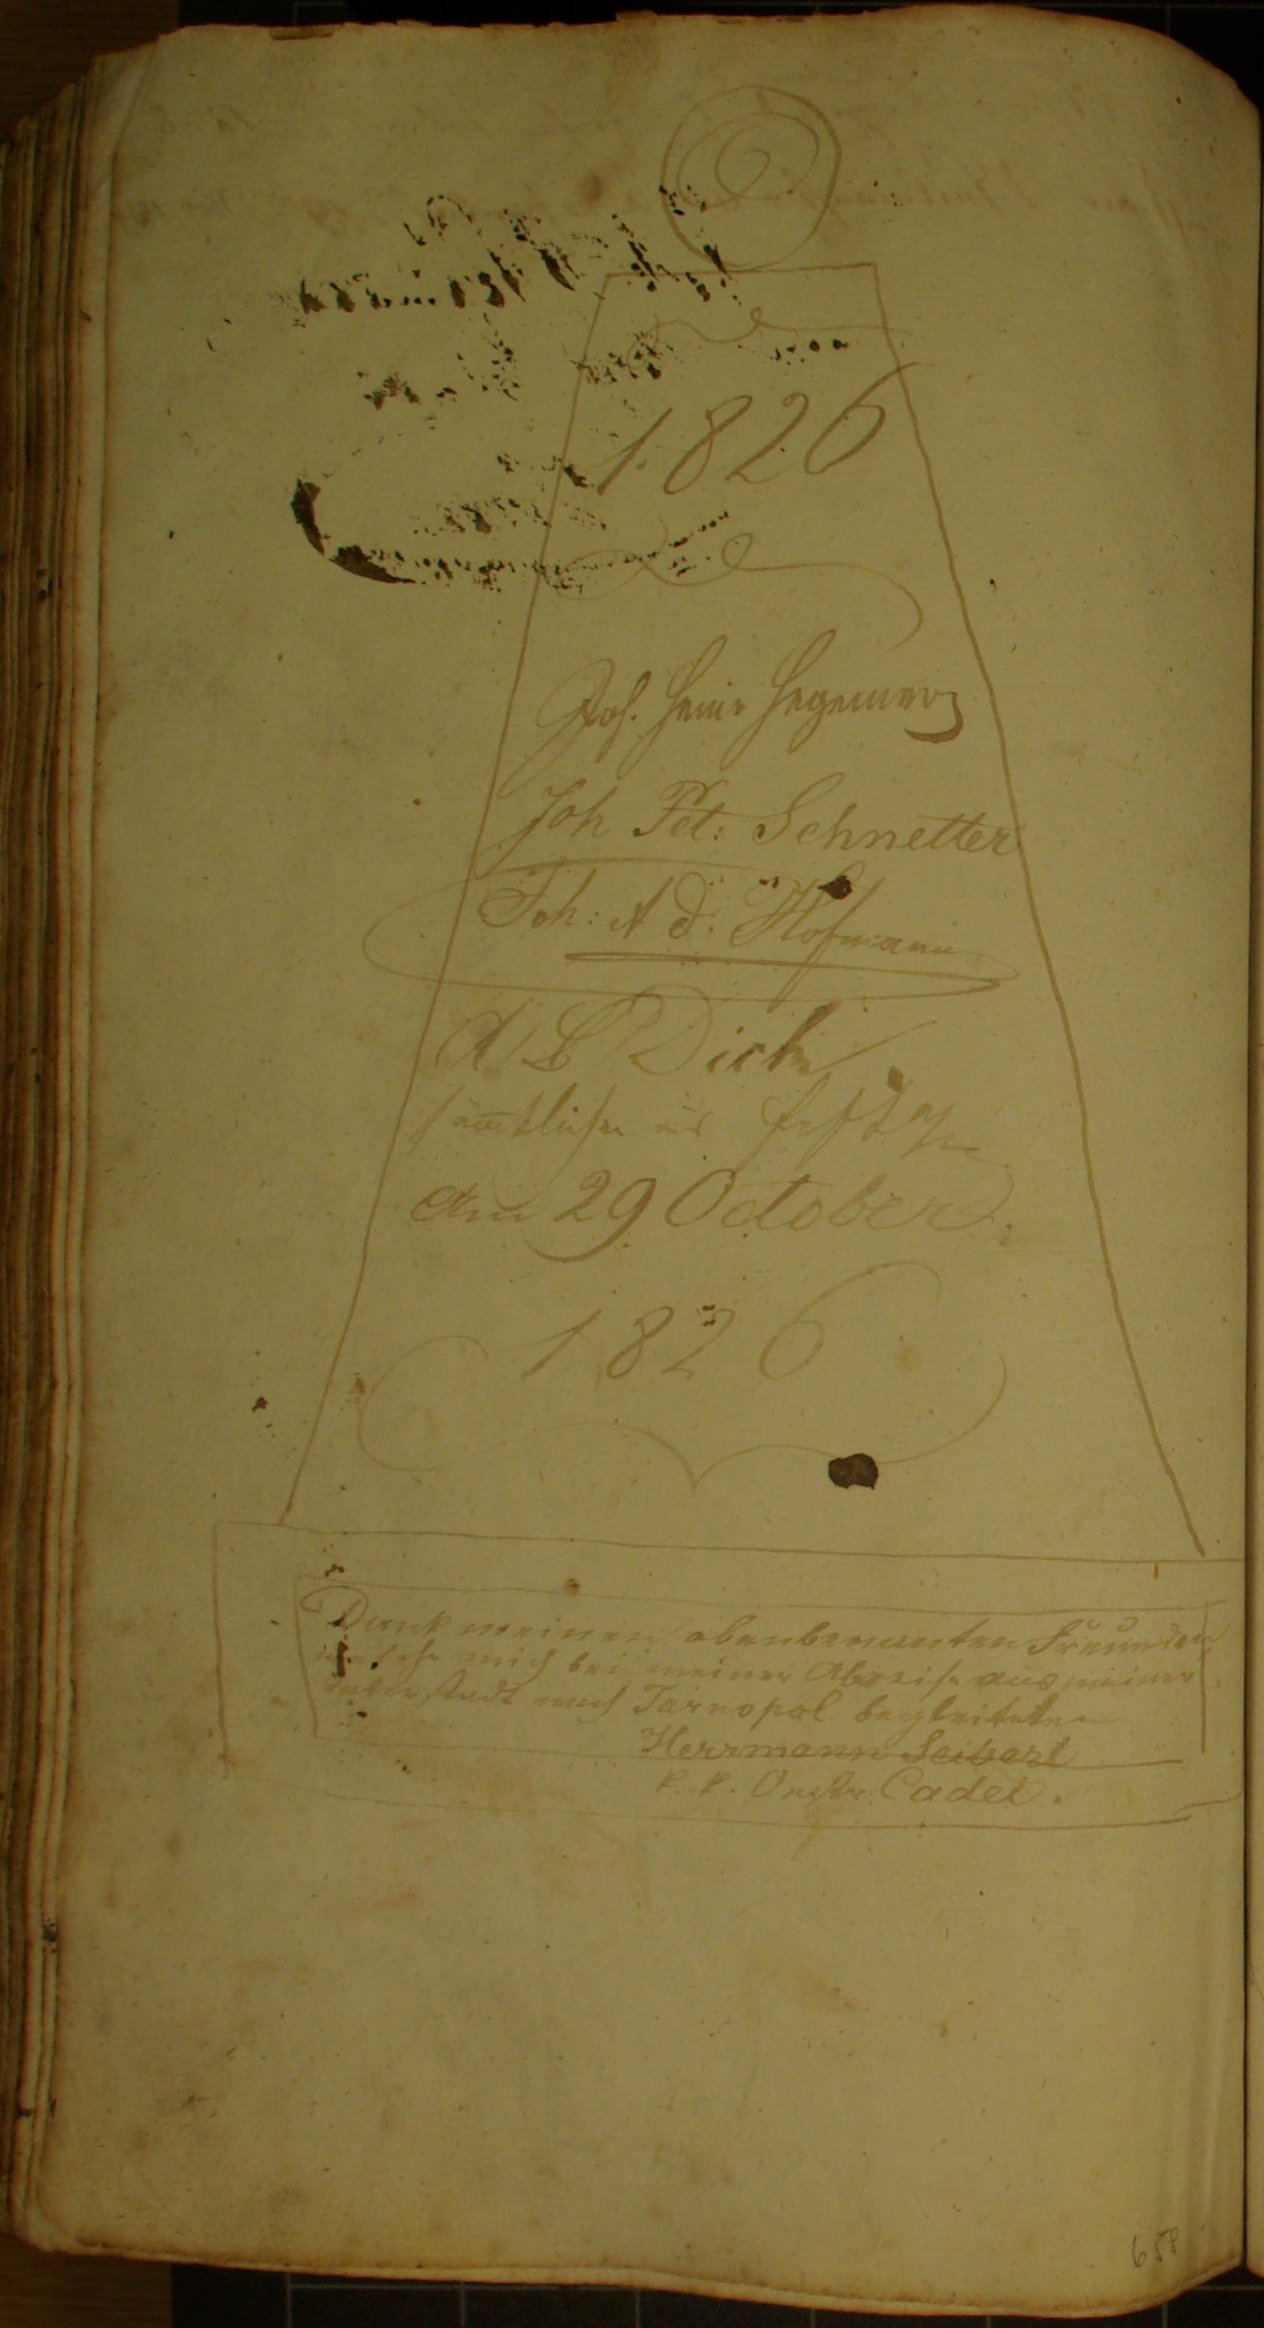 1826
Joh. Heinr Hegemer
Joh Pet: Schnetter
Joh: Ad: Hofmann
A L Dick
sämtliche aus
Am 29 October
1826
Dank meinen obenbenanten Freunden
welche mich bei meiner Abreise aus meiner
Vaterstadt nach Tarnopol begleiteten
Herrmann Seibert
k. k. Cadet.
658